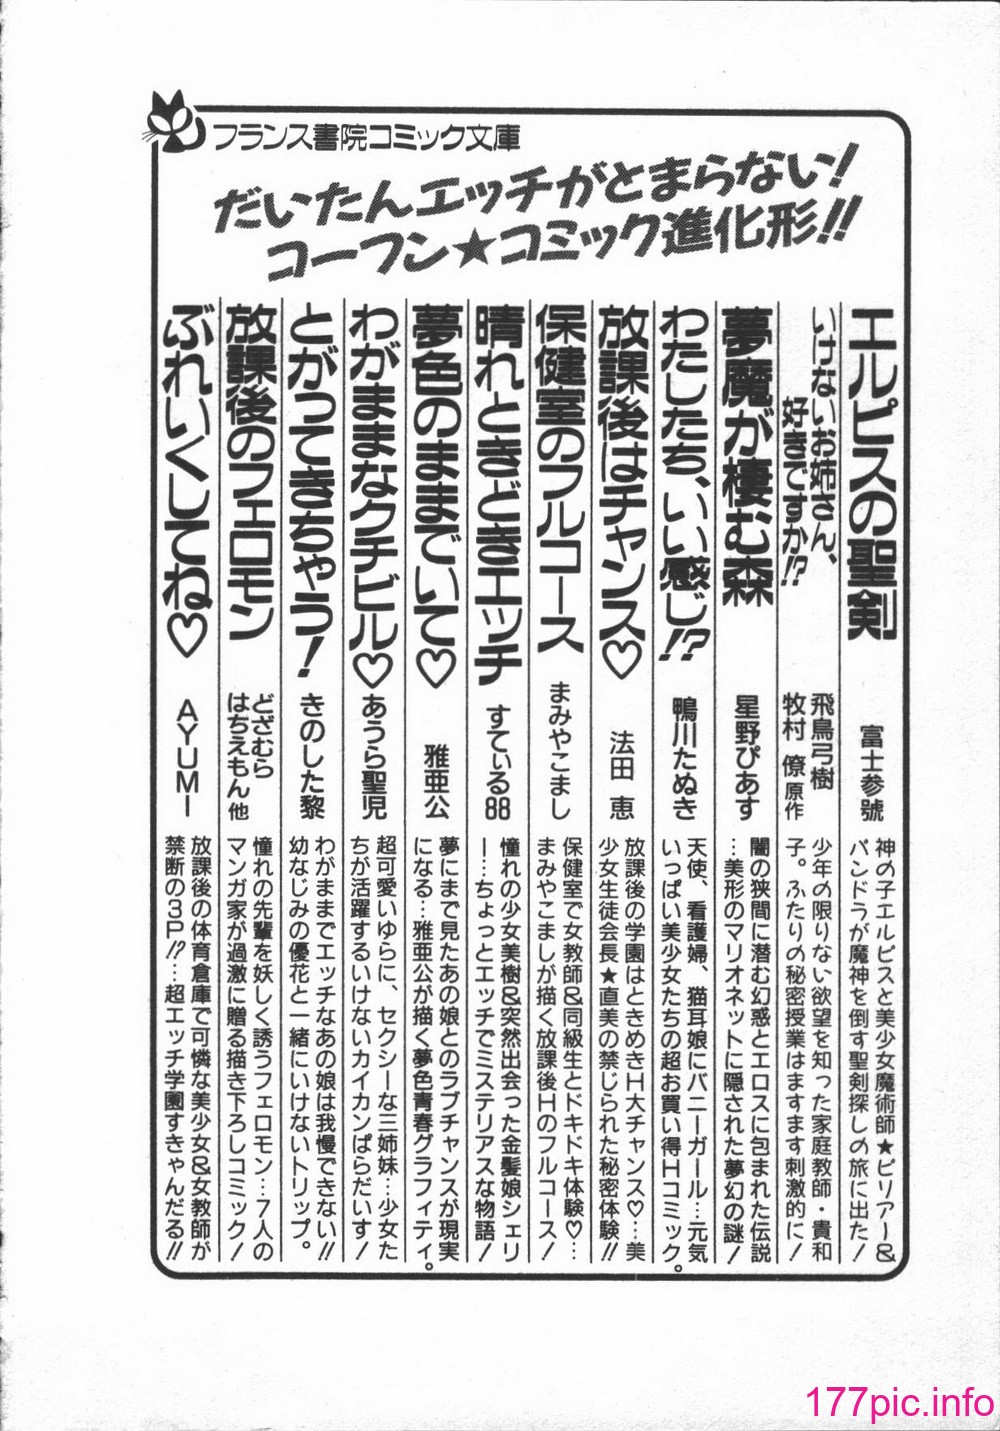 フランス書院コミック文庫
だいたんエッチがとまらない!
コーフン★コミック進化形!!
エルピスの聖剣
富士参號
神の子エルピスと美少女魔術師★ピリアー&
パンドラが魔神を倒す聖剣探しの旅に出た!
いけないお姉さん、
好きですか!?
飛鳥弓樹
牧村 僚 原作
少年の限りない欲望を知った家庭教師・貴和
子。ふたりの秘密授業はますます刺激的に!
夢魔が棲む森
星野ぴあす
闇の狭間に潜む幻惑とエロスに包まれた伝説
…美形のマリオネットに隠された夢幻の謎!
わたしたち、いい感じ!?
鴨川たぬき
天使、看護婦、猫耳娘にバニーガール…元気
いっぱい美少女たちの超お買い得Hコミック。
放課後はチャンス♡
法田 恵
放課後の学園はときめきH大チャンス♡…美
少女生徒会長★直美の禁じられた秘密体験!!
保健室のフルコース
まみやこまし
保健室で女教師&同級生とドキドキ体験♡…
まみやこましが描く放課後Hのフルコース!
晴れときどきエッチ
すてぃる88
憧れの少女美樹&突然出会った金髪娘シェリ
ー…ちょっとエッチでミステリアスな物語!
夢色のままでいて♡
雅亜公
夢にまで見たあの娘とのラブチャンスが現実
になる…雅亜公が描く夢色青春グラフィティ。
わがままなクチビル♡
あうら聖児
超可愛いゆらに、セクシーな三姉妹…少女た
ちが活躍するいけないカイカンぱらだいす!
とがってきちゃう!
きのした黎
わがままでエッチなあの娘は我慢できない!!
幼なじみの優花と一緒にいけないトリップ。
放課後のフェロモン
どざむら
はちえもん 他
憧れの先輩を妖しく誘うフェロモン…7人の
マンガ家が過激に贈る描き下ろしコミック!
ぶれいくしてね♡
AYUMI
放課後の体育倉庫で可憐な美少女&女教師が
禁断の3P!?…超エッチ学園すきゃんだる!!
177pic.info